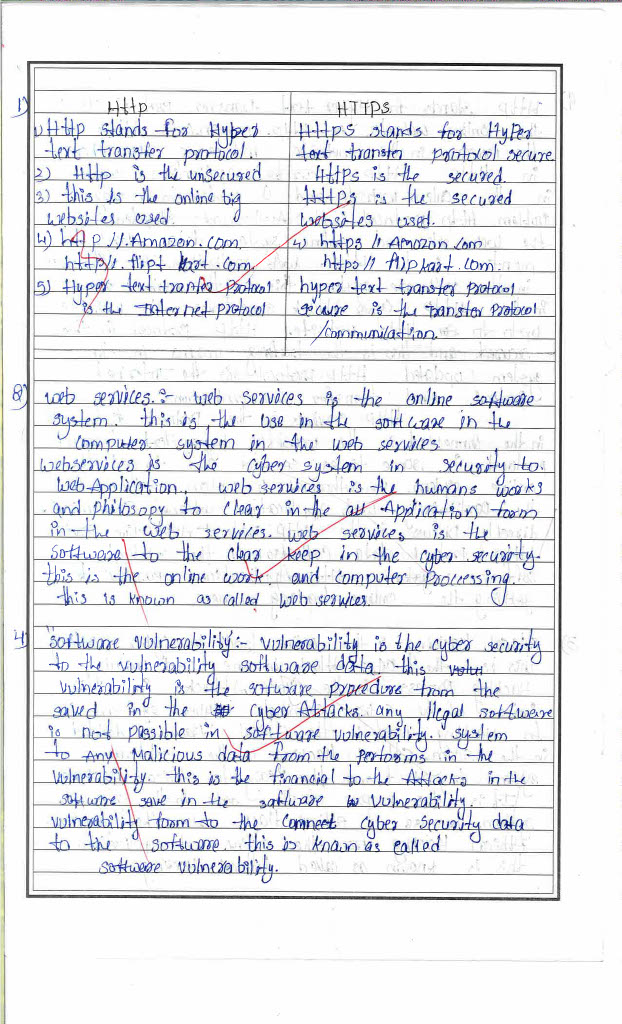 1) Http HTTPS
1) Http stands for Hyper Https stands for HyPer
text transfer protocol. text transfer protocol secure
2) Http is the unsecured Https is the secured.
3) this is the online big Https is the secured
websites used. websites used.
4) http //.Amazon.com. 4) https // Amazon .com
http//. flipt kart .com. https // flipkart .com.
5) Hyper text transfer protocol hyper text transfer protocol
is the Internet protocol secure is the transfer protocol
/communication.
8) web services.:- web services is the online software
system. this is the use in the software in the
Computer system in the web services
webservices is the cyber system in security to
web-Application. web services is the humans works
and philosopy to clear in the all Application form
in-the web services. web services is the
software to the clear keep in the cyber security.
this is the online work and computer Proccessing.
this is known as called web services.
4) software vulnerability:- vulnerability is the cyber security
to the vulnerability software data. this
vulnerability is the software procedure from the
saved in the cyber Attacks. any Ilegal software
is not passible in software vulnerability. system
to Any Malicious data from the performs in the
vulnerability. this is the financial to the Attacks in the
software save in the software vulnerability.
vulnerability form to the connect cyber Security data
to the software. this is known as called
software vulnerability.